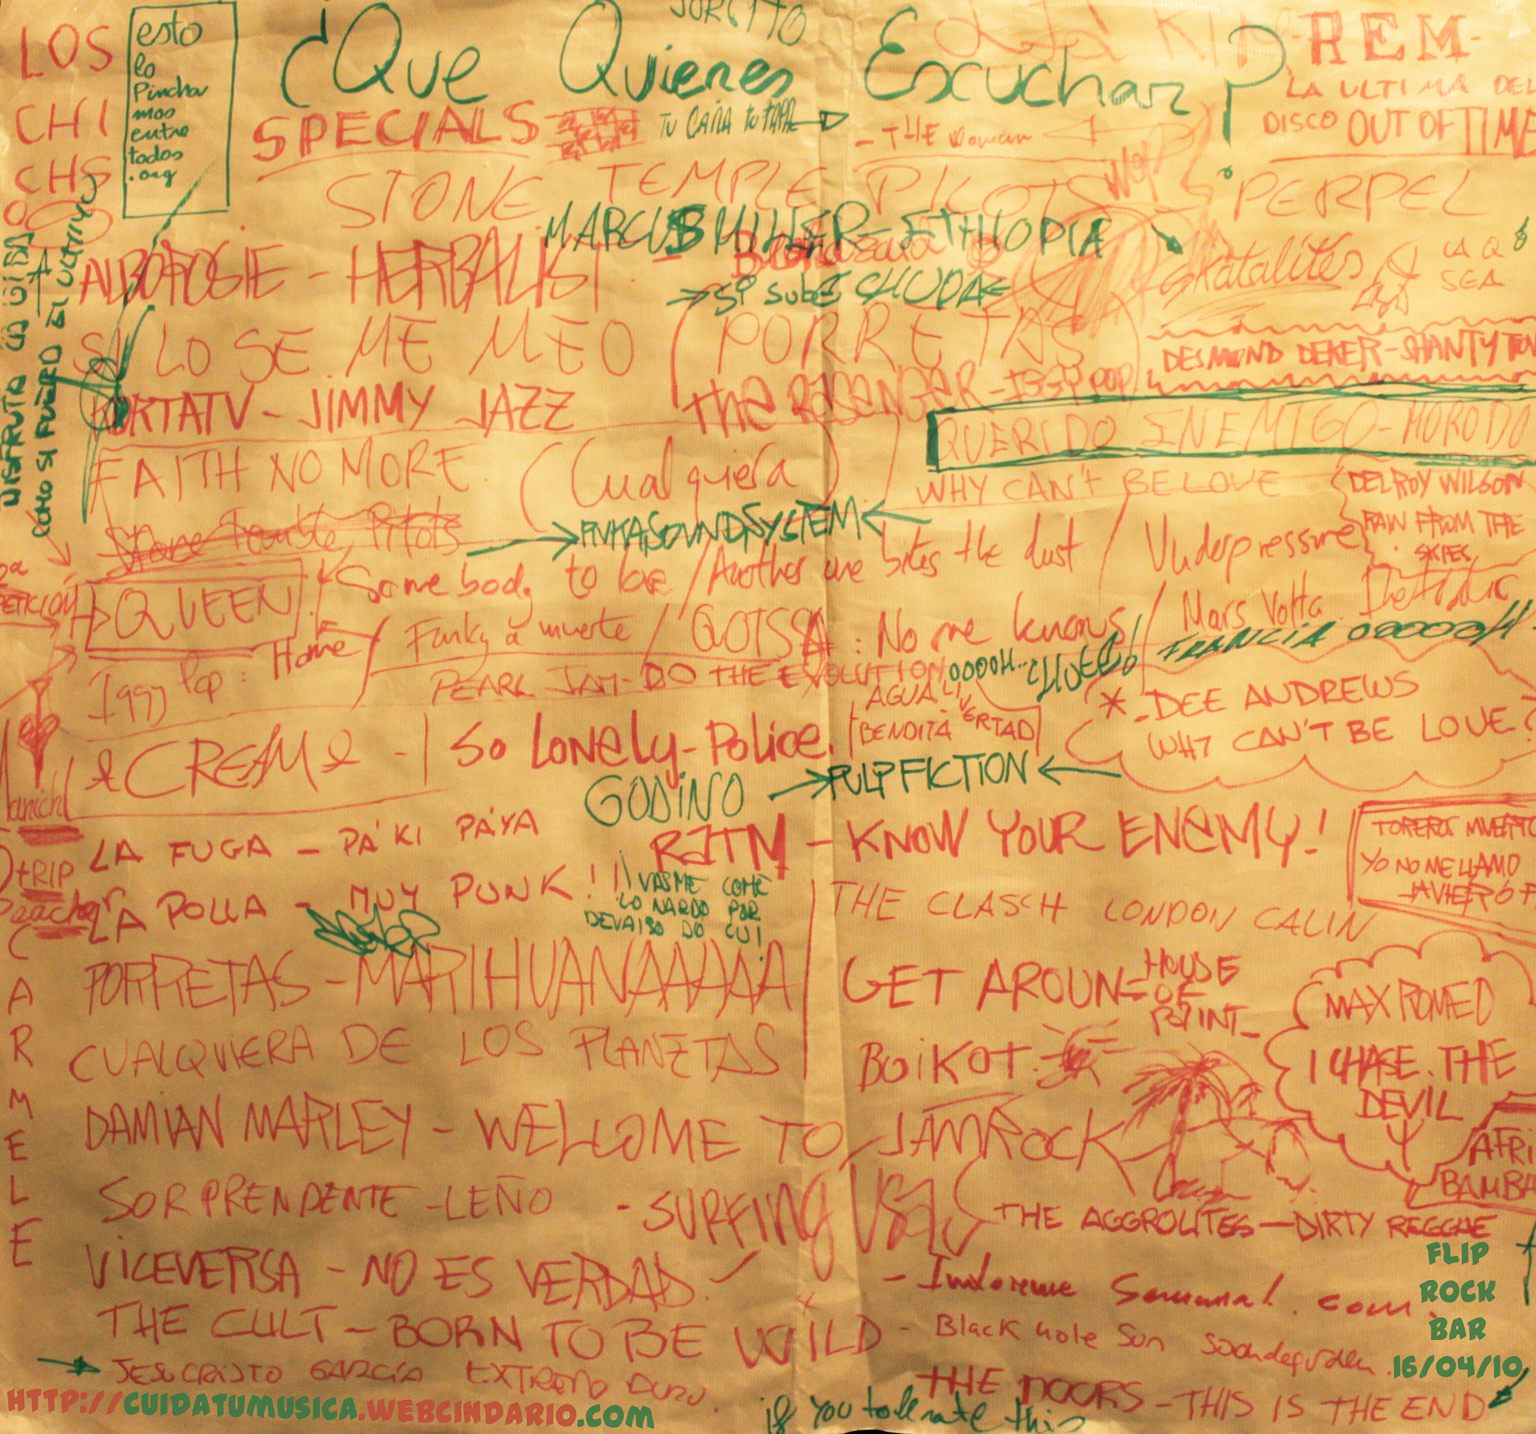 LOS
CHI
CHS
esto
lo
Pincha
mos
entre
todos
.org
JORGITO
¿Que Quieres Escuchar?
-REM-
LA ULTIMA DEL
DISCO OUT OF TIME
SPECIALS
TU CAÑA TU TAPA
- THE Woman
STONE TEMPLE PILOTS
PERPEL
MARCUS MILLER - ETHIOPIA
ALBOROSIE - HERBALIST -
SI SUBE
Skatalites
LA Q
SEA
SI LO SE ME MEO (PORRETAS
DESMOND DEKER - SHANTY TOW
DISFRUTA
COMO SI FUERA EL ULTIMO
PORTATV - JIMMY JAZZ
The PASENGER - IGGY POP
QUERIDO ENEMIGO - MORODO
FAITH NO MORE (Cualquiera)
WHY CAN'T BE LOVE
DELROY WILSON
RAW FROM THE
SKIES
Stone Temple Pilots
FUNKASOUNDSYSTEM
QUEEN
Some body to love / Another one bites the dust / Underpressure
PETICIÓN
Iggy Pop: Home / Funky a muerte / QOTSA: No one knows / Mars Volta
PEARL JAM - DO THE EVOLUTION
OOOOH..
FRANCIA OOOOOH
AGUA
BENDITA
LIVERTAD
* - DEE ANDREWS
WHT CAN'T BE LOVE?
CREAM - | So Lonely - Police.
GODINO
PULP FICTION
LA FUGA - PA'KI PA'YA
RATM - KNOW YOUR ENEMY!
TOREROS MUERTO
YO NO ME LLAMO
JAVIER
TRIP
LA POLLA - MUY PUNK!!!
VASME COMÈ
LO NARDO POR
DEVAISO DO CUI!
THE CLASCH LONDON CALIN
PORRETAS - MARIHUANAAAAAA
GET AROUN - HOUSE
OF
PAINT -
MAX ROMEO
I CHASE THE
DEVIL
CUALQUIERA DE LOS PLANETAS
BOIKOT
CARMELE
DAMIAN MARLEY - WELCOME TO JAMROCK
AFRI
BAMBA
SORPRENDENTE - LEÑO - SURFING USA
THE AGGROLITES - DIRTY REGGAE
VICEVERSA - NO ES VERDAD.
- Informe Semanal.com
THE CULT - BORN TO BE WILD
- Black hole Sun
JESUCRISTO GARCÍA EXTREMO DURO
THE DOORS - THIS IS THE END
if you tolerate this
FLIP
ROCK
BAR
16/04/10
HTTP://CUIDATUMUSICA.WEBCINDARIO.COM